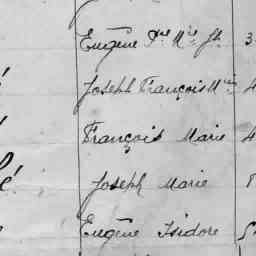 Eugène Pre Mie Jh 3
é Joseph François Mie 4
François Marie 4
é Joseph Marie
Eugène Isidore 5